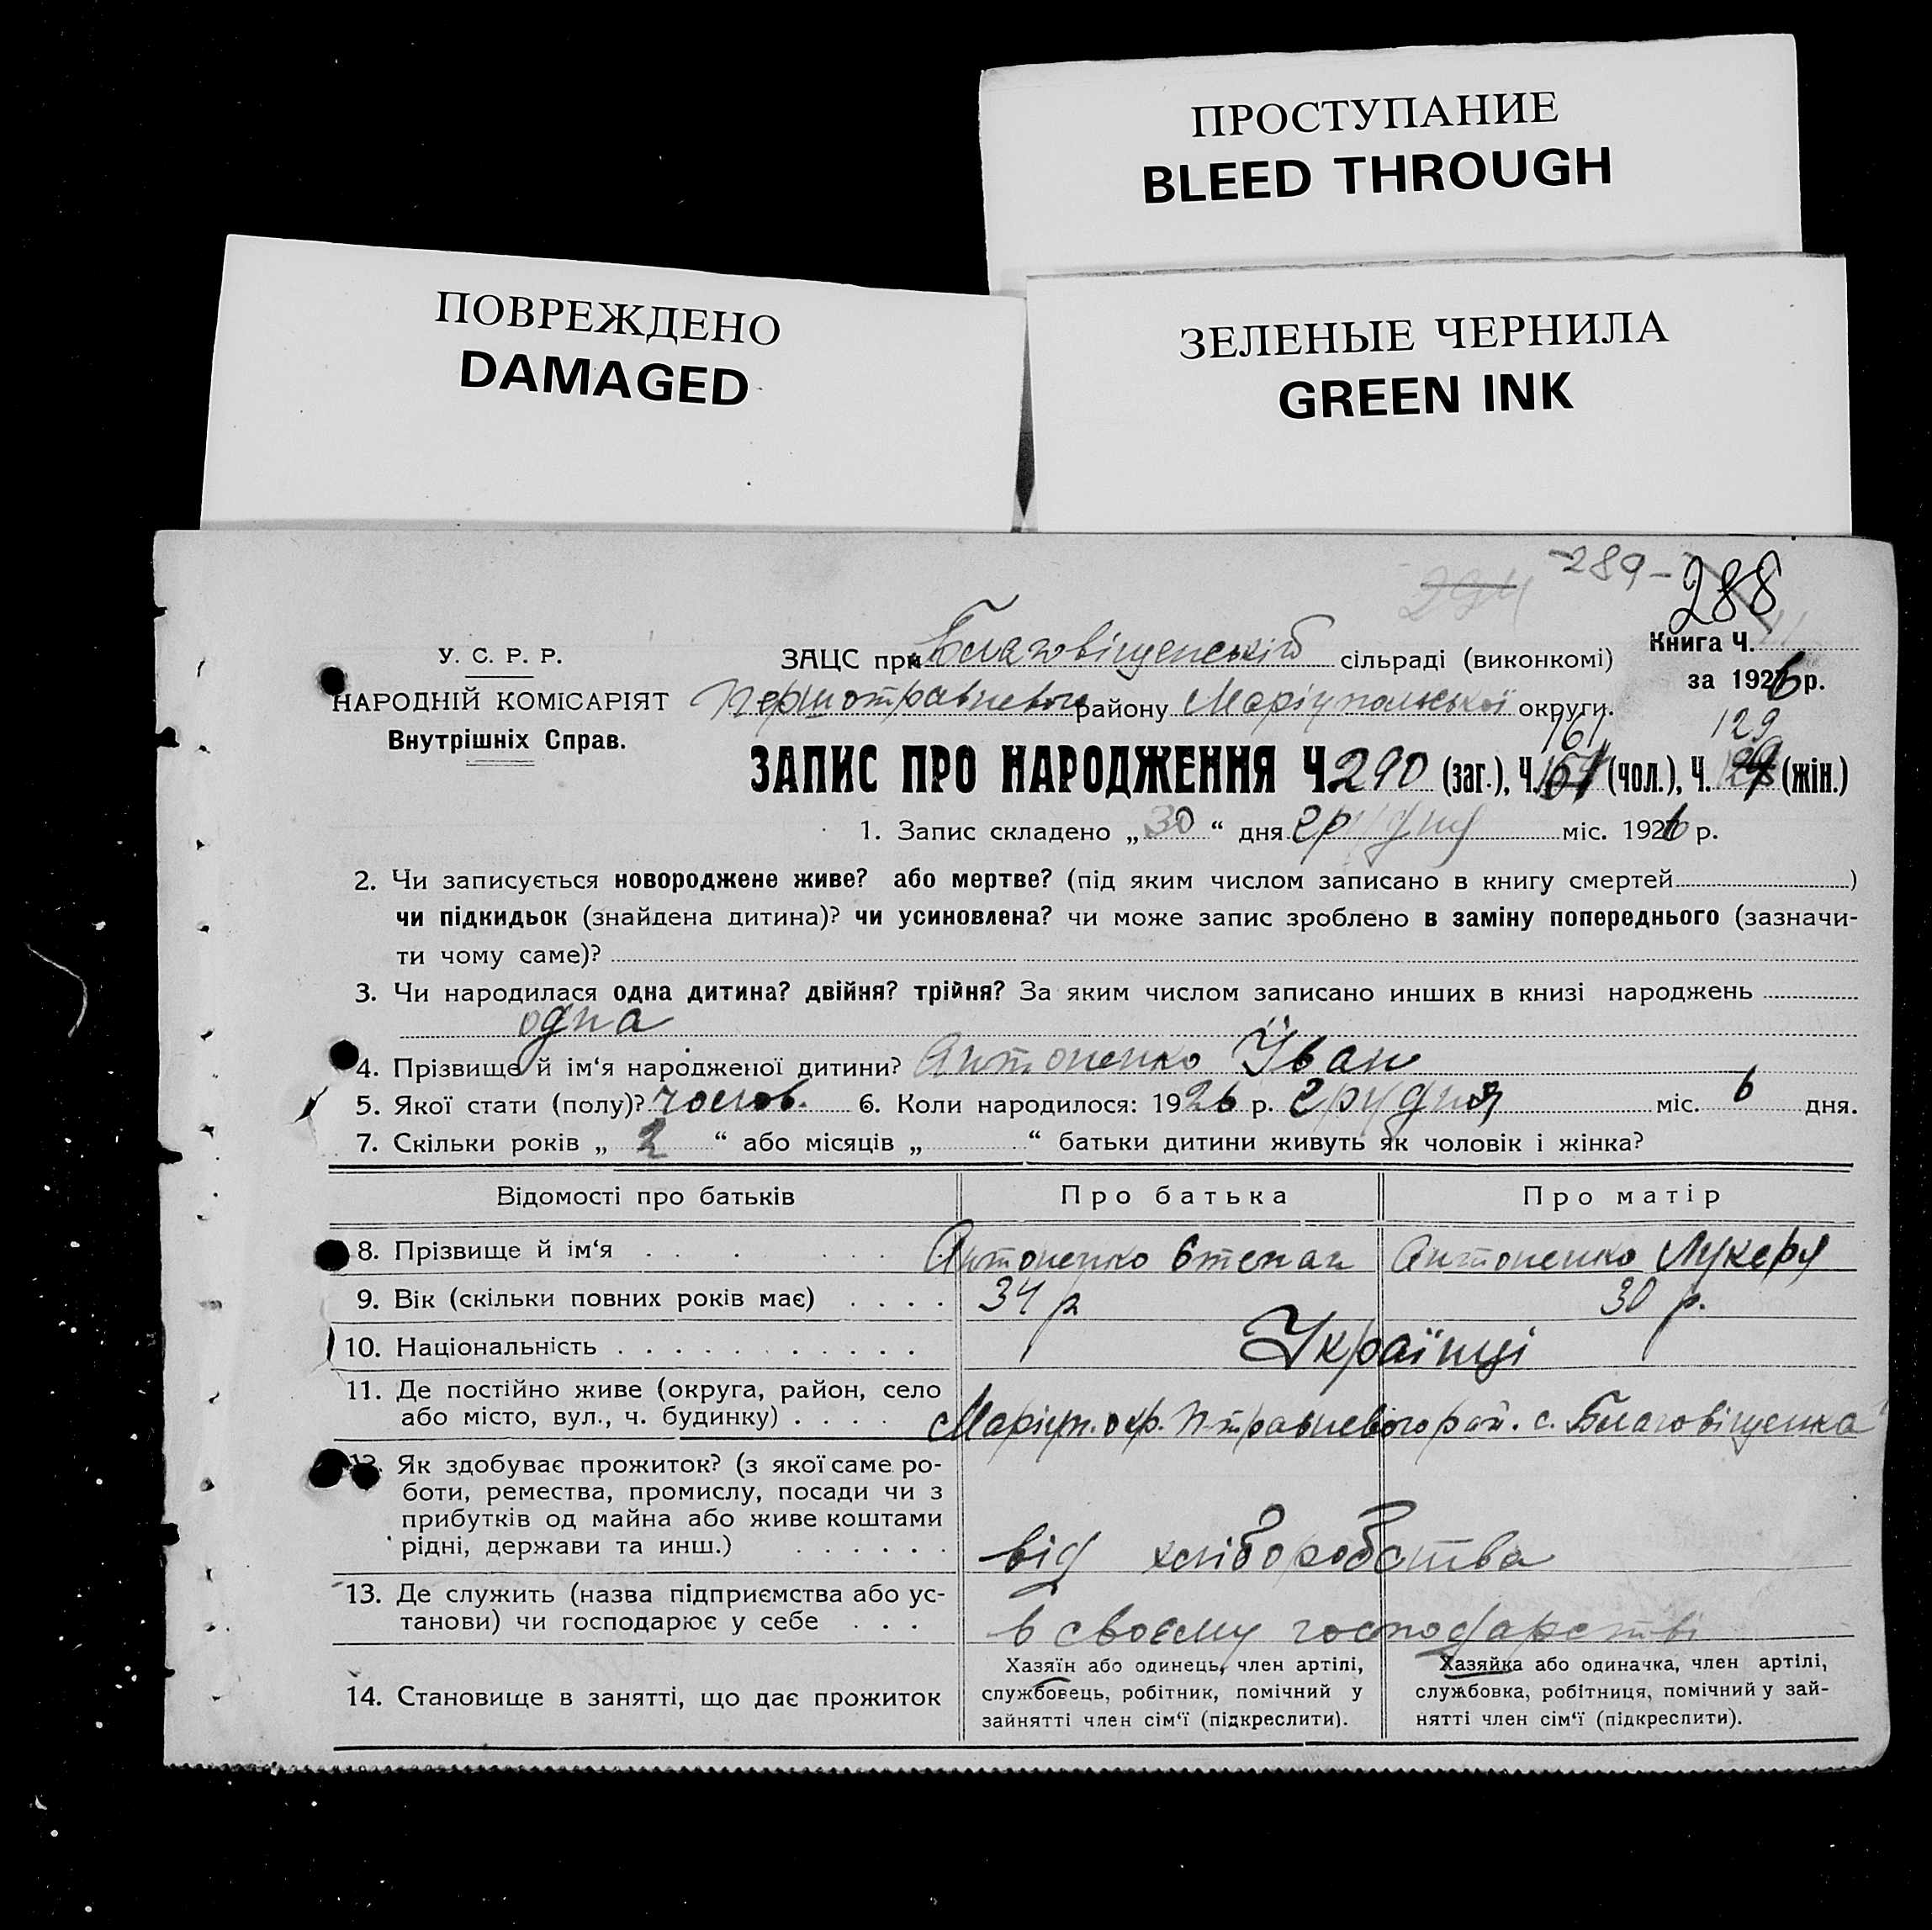 ПРОСТУПАНИЕ
BLEED THROUGH
ПОВРЕЖДЕНО
DAMAGED
ЗЕЛЕНЫЕ ЧЕРНИЛА
GREEN INK
-289-
288
У. С. Р. Р.
НАРОДНІЙ КОМІСАРІЯТ
Внутрішніх Справ.
ЗАЦС при Благовіщенській сільраді (виконкомі)
Книга Ч.
за 1926 р.
Першотравневого району Маріупольської округи.
161 129
ЗАПИС ПРО НАРОДЖЕННЯ Ч. 290 (заг.), Ч. (чол.), Ч. (жін.)
1. Запис складено „30“ дня грудня міс. 1926 р.
2. Чи записується новороджене живе? або мертве? (під яким числом записано в книгу смертей )
чи підкидьок (знайдена дитина)? чи усиновлена? чи може запис зроблено в заміну попереднього (зазначи-
ти чому саме)?
3. Чи народилася одна дитина? двійня? трійня? За яким числом записано инших в книзі народжень
одна
4. Прізвище й ім‘я народженої дитини? Антоненко Їван
5. Якої стати (полу)? чолов. 6. Коли народилося: 1926 р. грудня міс. 6 дня.
7. Скільки років „ 2 “ або місяців „ “ батьки дитини живуть як чоловік і жінка?
Відомості про батьків Про батька Про матір
8. Прізвище й ім‘я Антоненко Степан Антоненко Лукеря
9. Вік (скільки повних років має) 34 р 30 р.
10. Національність Українці
11. Де постійно живе (округа, район, село
або місто, вул., ч. будинку) Маріуп. окр. П-травневого рай. с. Благовіщенка
12. Як здобуває прожиток? (з якої саме ро-
боти, ремества, промислу, посади чи з
прибутків од майна або живе коштами
рідні, держави та инш.) від хліборобства
13. Де служить (назва підприємства або ус-
танови) чи господарює у себе в своєму господарстві
14. Становище в занятті, що дає прожиток
Хазяїн або одинець, член артілі,
службовець, робітник, помічний у
зайнятті член сім‘ї (підкреслити).
Хазяйка або одиначка, член артілі,
службовка, робітниця, помічний у зай-
нятті член сім‘ї (підкреслити).